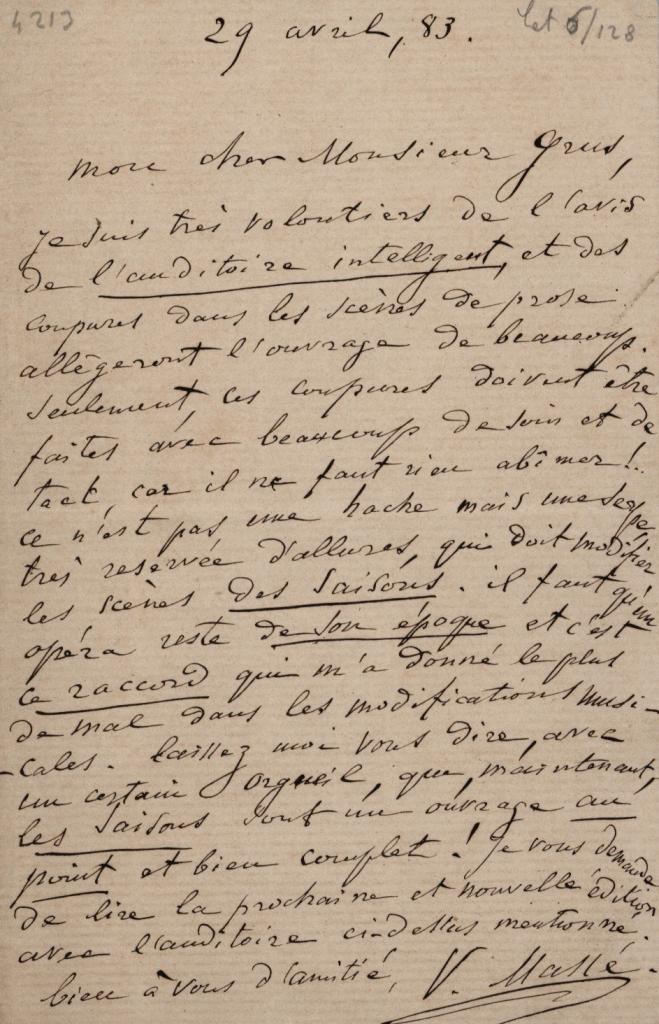 4213
Let 6/128
29 avril, 83.
mon cher Monsieur Grus,
je suis très volontiers de l'avis
de l'auditoire intelligent, et des
coupures dans les scènes de prose
allègeront l'ouvrage de beaucoup.
seulement, ces coupures doivent être
faites avec beaucoup de soin et de
tact, car il ne faut rien abîmer!..
ce n'est pas une hache mais une serpe
très reservée d'allures, qui doit modifier
les scènes des Saisons. il faut qu'un
opéra reste de son époque et c'est
ce raccord qui m'a donné le plus
de mal dans les modifications musi-
-cales. laissez moi vous dire, avec
un certain orgueil, que, maintenant,
les Saisons sont un ouvrage au
point et bien complet! je vous demande
de lire la prochaine et nouvelle édition
avec l'auditoire ci-dessus mentionné.
bien à vous d'amitié, V. Massé.